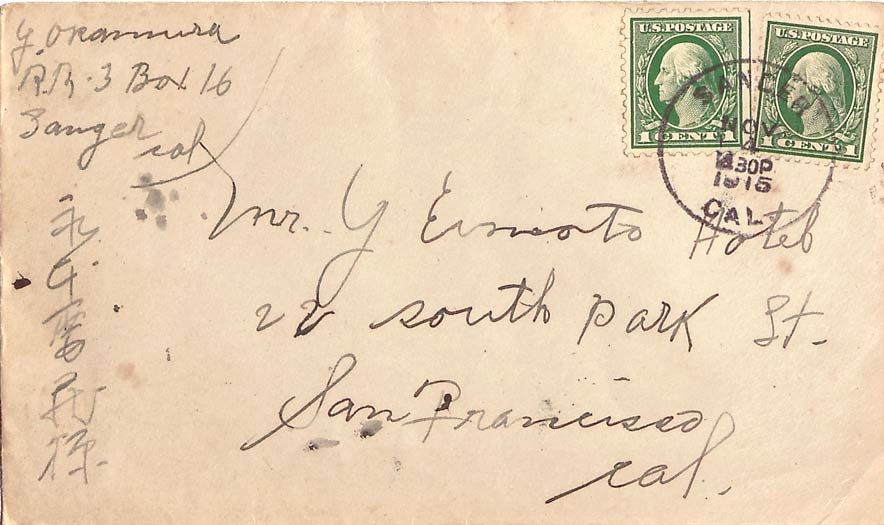 Y. Okamura
R.R. 3 Box 16
Sanger
Cal
U.S. POSTAGE
1 CENT 1
U.S. POSTAGE
CENT 1
SANGER
NOV
4
30P
1915
CAL
Mr. Y Hotel
22 South Park St.
San Francisco
Cal.
様